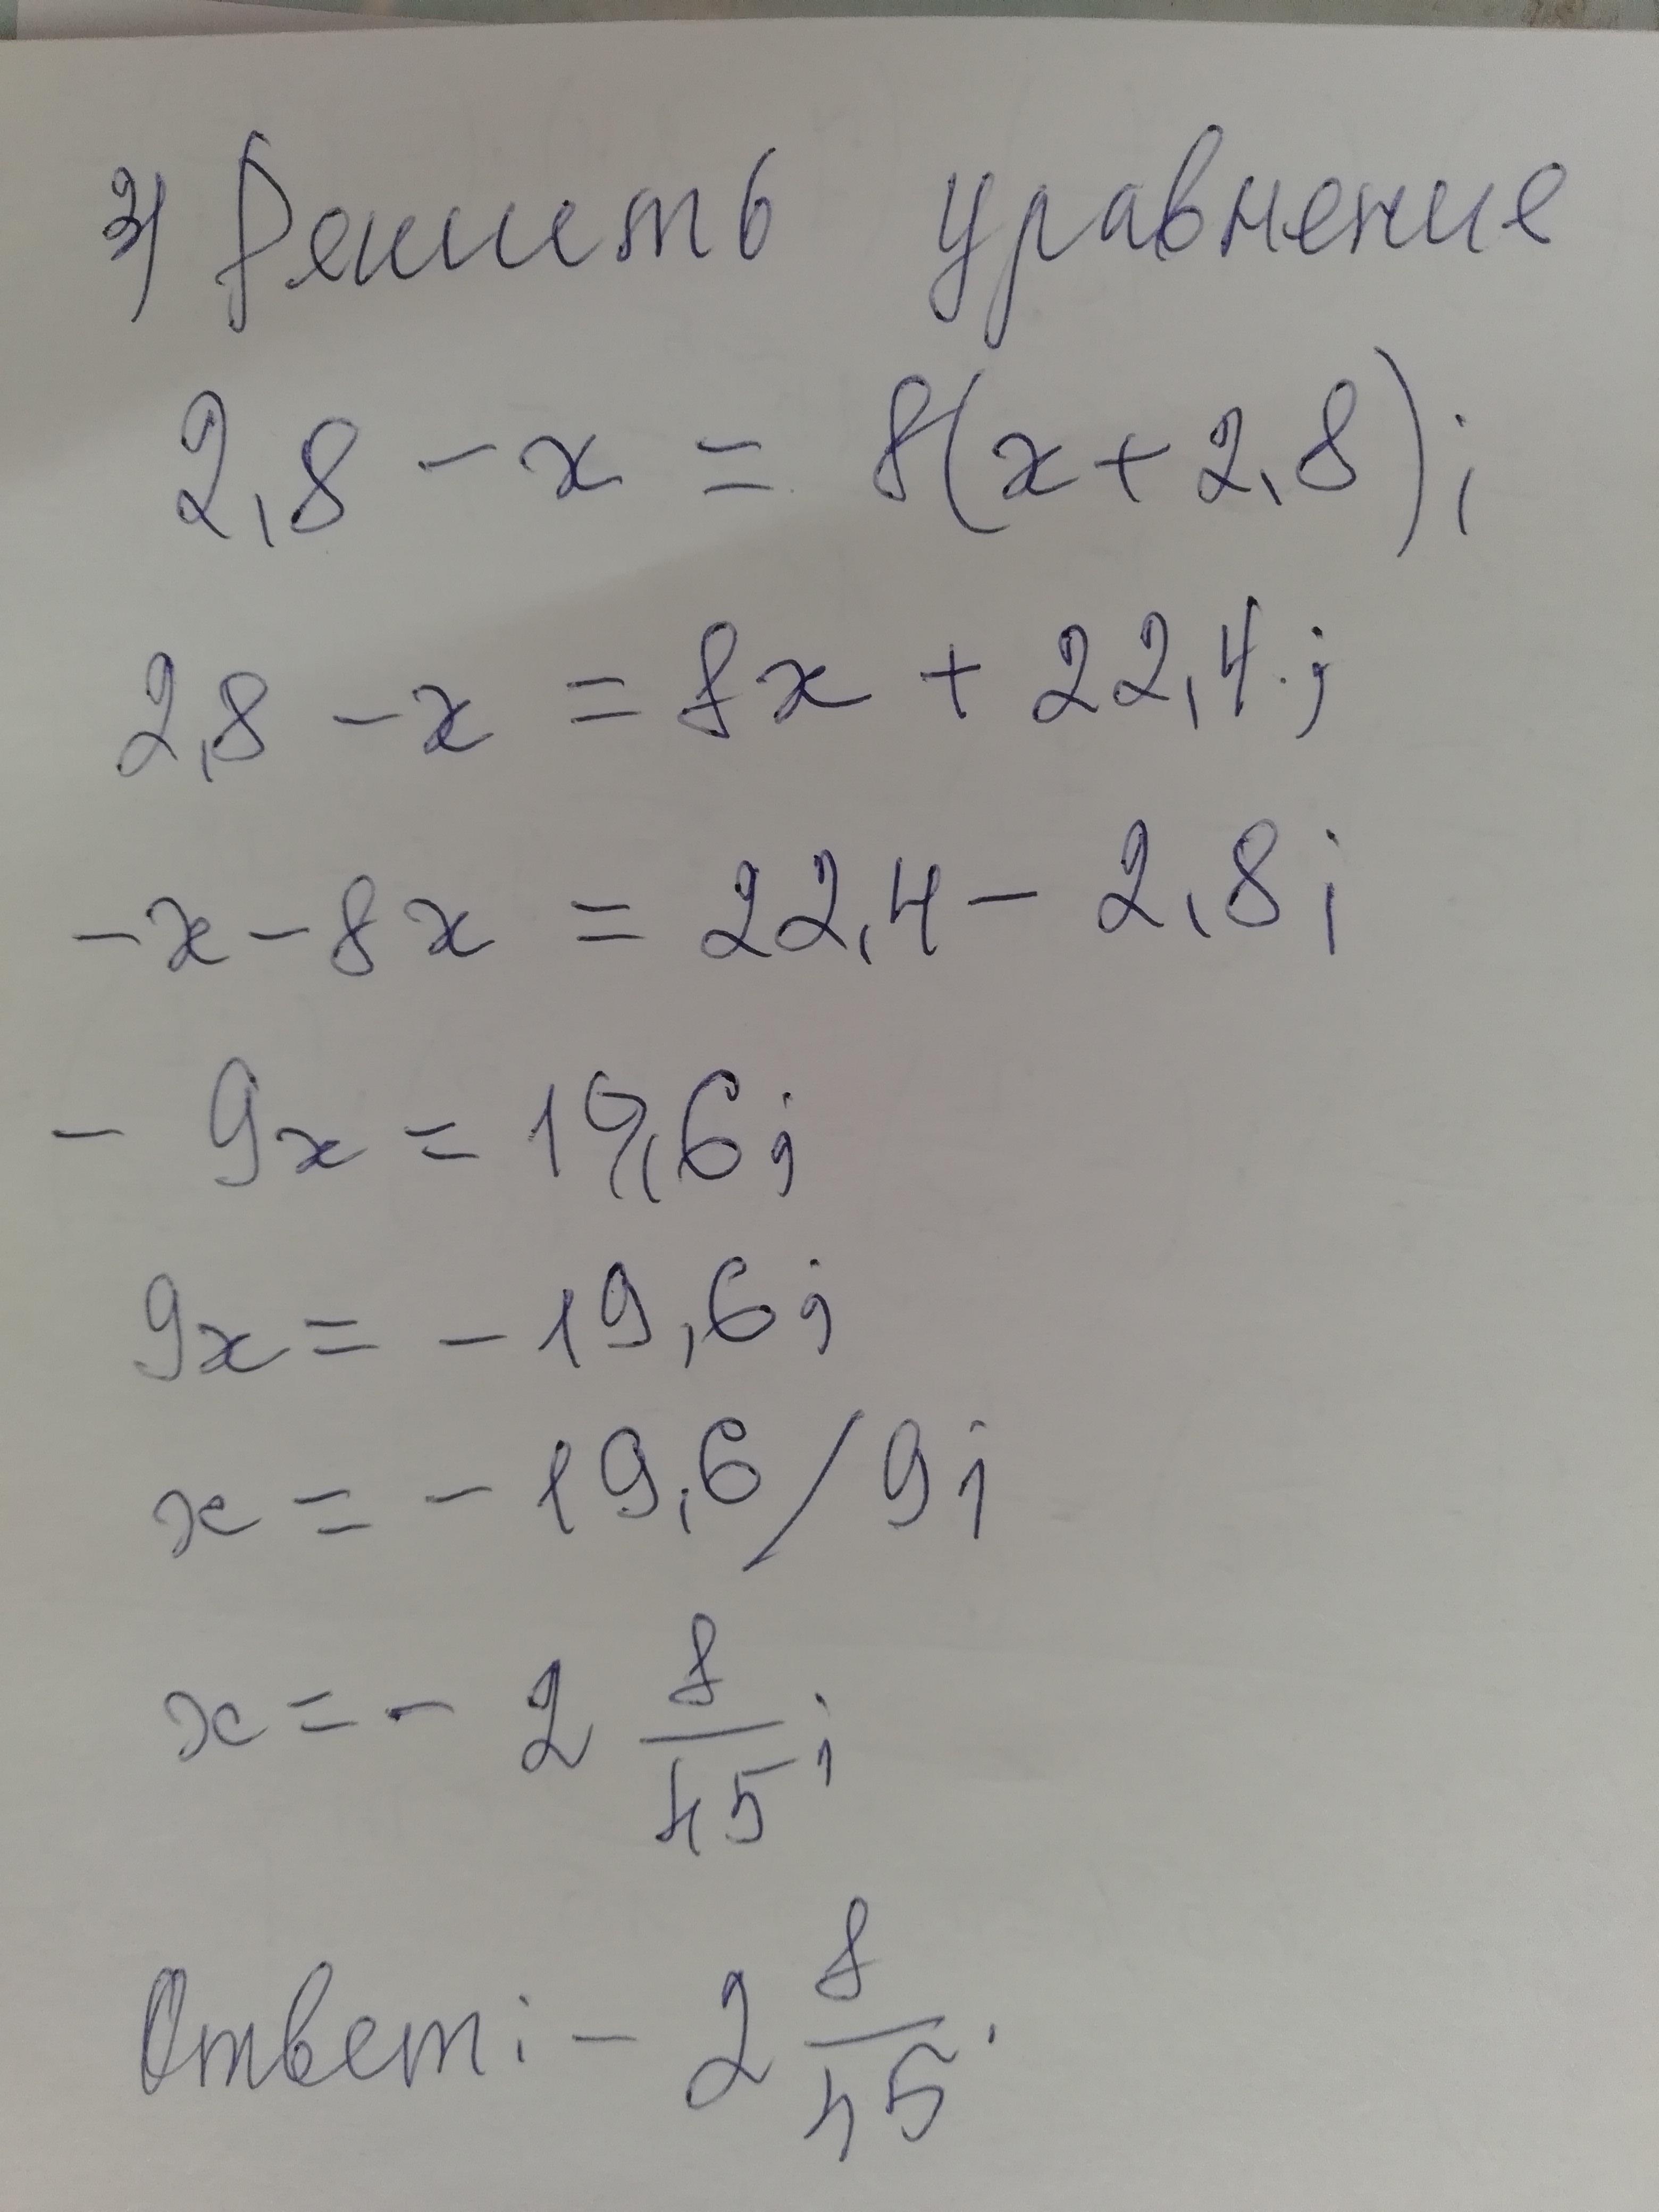 3) Решить уравнение
2,8 - x = 8(x + 2,8);
2,8 - x = 8x + 22,4;
-x - 8x = 22,4 - 2,8;
- 9x = 19,6;
9x = - 19,6;
x = - 19,6 / 9;
x = - 2 8/45;
Ответ: - 2 8/45.